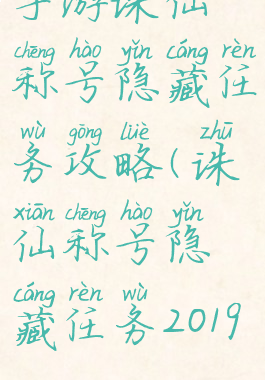 手游诛仙
chēng hào yǐn cáng rèn
称号隐藏任
wù gōng lüè zhū
务攻略(诛
xiān chēng hào yǐn
仙称号隐
cáng rèn wù
藏任务2019